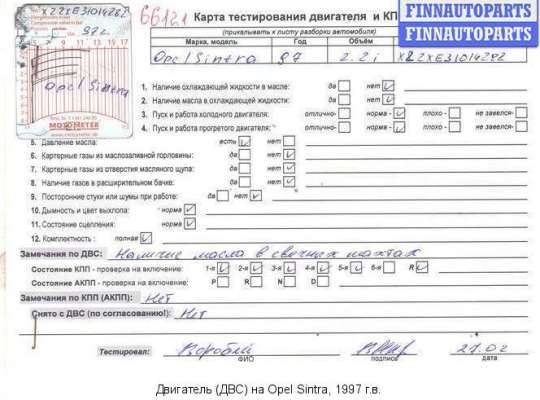 X22XE31014282
97г.
Opel Sintra
MOTOMETER
66121
Карта тестирования двигателя и КП
(прикалывать к листу разборки автомобиля)
FINNAUTOPARTS
FINNAUTOPARTS
Марка, модель Год Объём
Opel Sintra 97 2.2i X22XE31014282
1. Наличие охлаждающей жидкости в масле: да нет
2. Наличие масла в охлаждающей жидкости: да нет
3. Пуск и работа холодного двигателя: отлично- норма- плохо- не завелся-
4. Пуск и работа прогретого двигателя: отлично- норма- плохо- не завелся-
5. Давление масла: есть нет
6. Картерные газы из маслозаливной горловины: да нет
7. Картерные газы из отверстия масляного щупа: да нет
8. Наличие газов в расширительном бачке: да нет
9. Посторонние стуки или шумы при работе: да нет
10. Дымность и цвет выхлопа: норма
11. Состояние сцепления: норма
12. Комплектность: полная
Замечания по ДВС: Наличие масла в свечных шахтах
Состояние КПП - проверка на включение: 1-я 2-я 3-я 4-я 5-я 6-я R
Состояние АКПП - проверка на включение: P R N D
Замечания по КПП (АКПП): Нет
Снято с ДВС (по согласованию!): Нет
Тестировал: Воробей 21.02
ФИО подпись дата
Двигатель (ДВС) на Opel Sintra, 1997 г.в.